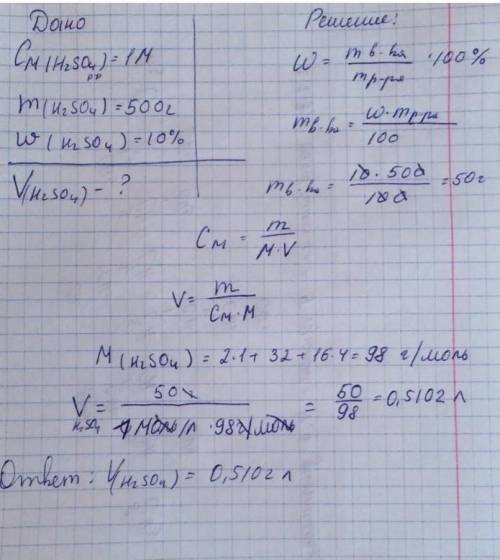 Дано
Cм(H₂SO₄) = 1М
р-р
m(H₂SO₄) = 500г
w(H₂SO₄) = 10%
V(H₂SO₄) - ?
Решение:
w = mв-ва / mр-ра · 100%
mв-ва = w · mр-ра / 100
mв-ва = 10 · 500 / 100 = 50г
Cм = m / M · V
V = m / Cм · M
M(H₂SO₄) = 2·1 + 32 + 16·4 = 98 г/моль
V H₂SO₄ = 50г / 1 моль/л · 98г/моль = 50 / 98 = 0,5102 л
Ответ: V(H₂SO₄) = 0,5102 л